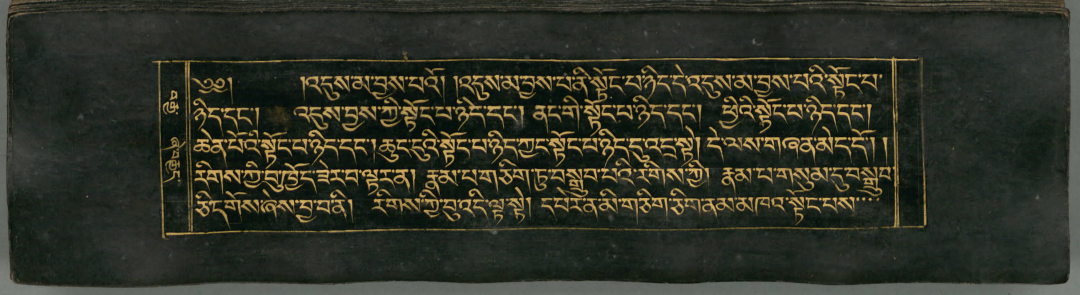 ༄༅། །འདུས་མ་བྱས་པའོ། །འདུས་མ་བྱས་པ་ནི་སྟོང་པ་ཉིད་དེ་འདུས་མ་བྱས་པའི་སྟོང་པ་
ཉིད་དང༌། འདུས་བྱས་ཀྱི་སྟོང་པ་ཉིད་དང༌། ནང་གི་སྟོང་པ་ཉིད་དང༌། ཕྱིའི་སྟོང་པ་ཉིད་དང༌།
ཆེན་པོའི་སྟོང་པ་ཉིད་དང༌། ཆུང་ངུའི་སྟོང་པ་ཉིད་ཀྱང་སྟོང་པ་ཉིད་དུ་འདྲ་སྟེ། དེ་ལས་གཞན་མེད་དོ། །
རིགས་ཀྱི་བུ་ཁྱོད་ཟེར་བ་ལྟར་ན། རྣམ་པ་གཅིག་ཏུ་བསྒྲུབ་པའི་རིགས་ཀྱི། རྣམ་པ་གསུམ་དུ་བསྒྲུབ་
ཅི་དགོས་ཞེས་བྱ་བ་ནི། རིགས་ཀྱི་བུ་འདི་ལྟ་སྟེ། དཔེར་ན་མི་གཅིག་ཅིག་ནམ་མཁའ་སྟོང་པས་